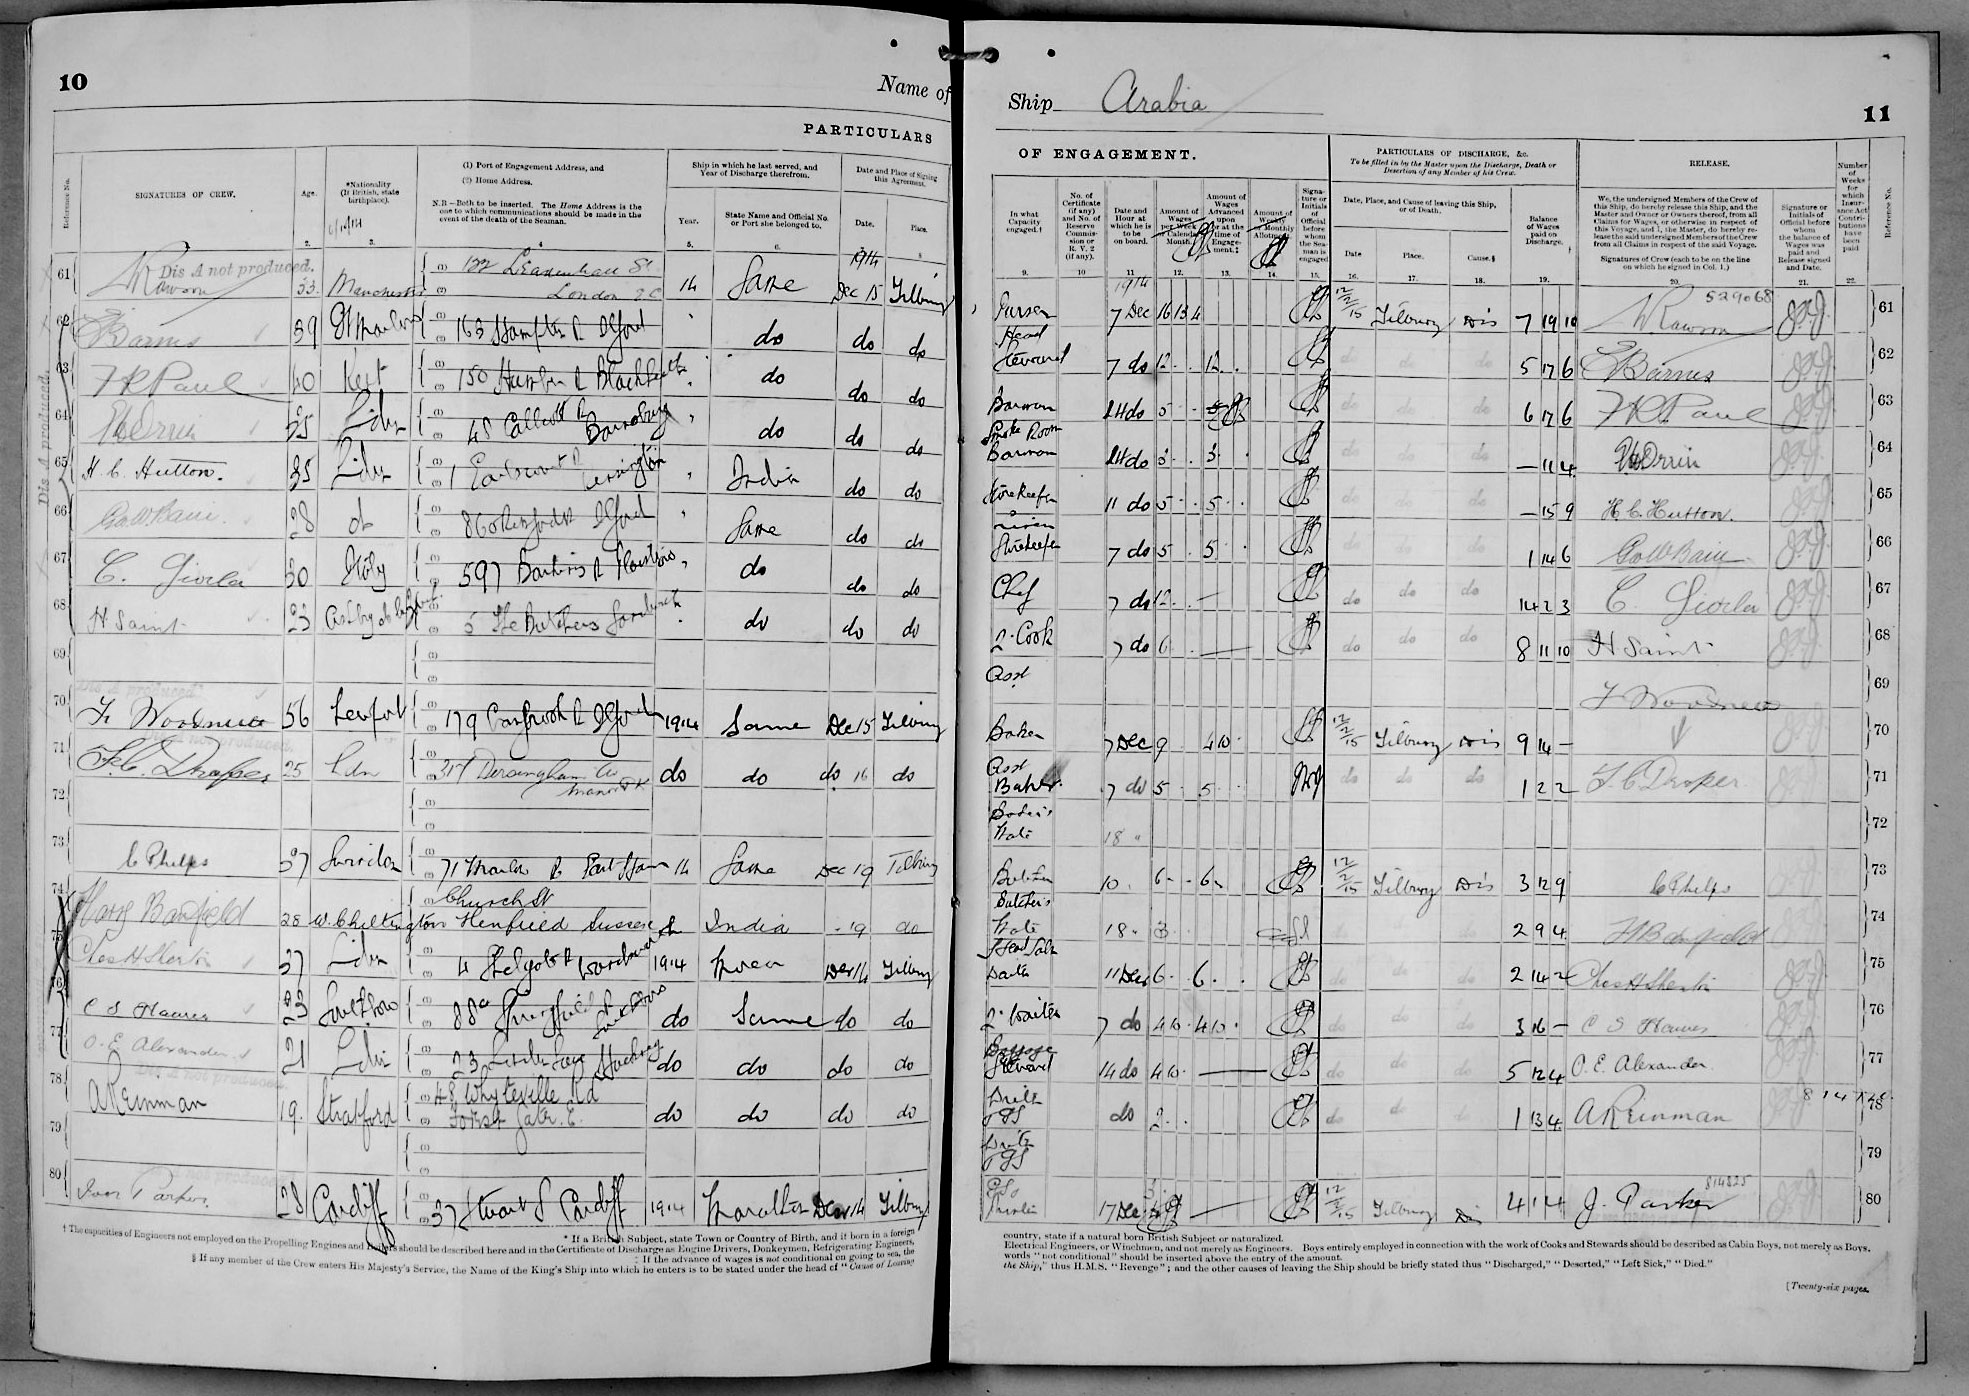 10
Name of
PARTICULARS
Reference No.
SIGNATURES OF CREW.
Age.
*Nationality (If British, state birthplace).
(1) Port of Engagement Address, and
(2) Home Address.
N.B—Both to be inserted. The Home Address is the one to which communications should be made in the event of the death of the Seaman.
Ship in which he last served, and Year of Discharge therefrom.
Year.
State Name and Official No. or Port she belonged to.
Date and Place of Signing this Agreement.
Date.
Place.
2. 3. 4 5. 6.
Dis A not produced.
61 W Rawson 33 Manchester 122 Leadenhall St London EC 14 Same Dec 15 Tilbury
62 E Barnes 39 163 Hampton R Ilford do do do
63 F R Paul 40 Kent 150 Humber R Blackheath do do do
64 Orrin 35 Ldn 48 Callcott R Barnsbury do do do
65 H. C. Hutton. 35 Ldn 1 Earlscourt R Kensington India do do
66 28 do Ilford Same do do
67 C. 30 Italy 597 Barking R Plaistow do do do
68 H Saint 33 5 The Butchery Sandwich do do do
69
Dis A produced
70 56 179 Ilford 1914 Same Dec 15 Tilbury
71 F. C. Draper 25 Ldn 317 Dersingham Av Manor Pk do do do 16 do
72
73 C Phelps 37 Swindon 71 R East Ham 14 Same Dec 19 Tilbury
74 Harry Banfield 28 W. Chiltington Church St Henfield Sussex 14 India - 19 do
75 Chas H 37 Ldn 4 1914 Dec 14 Tilbury
76 C S Hawes 23 88a do Same do do
77 O. E. Alexander 21 Ldn 23 Hackney do do do do
Dis A not produced.
78 A Reinman 19. Stratford 48 Whyteville Rd Forest Gate. E. do do do do
79
80 Parker 28 Cardiff 37 Stuart S Cardiff 1914 Dec 14 Tilbury
† The capacities of Engineers not employed on the Propelling Engines and Boilers should be described here and in the Certificate of Discharge as Engine Drivers, Donkeymen, Refrigerating Engineers,
* If a British Subject, state Town or Country of Birth, and if born in a foreign
‡ If the advance of wages is not conditional on going to sea, the
§ If any member of the Crew enters His Majesty's Service, the Name of the King's Ship into which he enters is to be stated under the head of "Cause of Leaving
Ship Arabia
11
OF ENGAGEMENT.
PARTICULARS OF DISCHARGE, &c.
To be filled in by the Master upon the Discharge, Death or Desertion of any Member of his Crew.
RELEASE.
Number of Weeks for which Insurance Act Contributions have been paid
Reference No.
In what Capacity engaged.†
No. of Certificate (if any) and No. of Reserve Commission or R. V. 2 (if any).
Date and Hour at which he is to be on board.
Amount of Wages per Week or Calendar Month.
Amount of Wages Advanced upon or at the time of Engagement.‡
Amount of Weekly or Monthly Allotment.
Signature or Initials of Official before whom the Seaman is engaged
Date, Place, and Cause of leaving this Ship, or of Death.
Date
Place.
Cause.§
Balance of Wages paid on Discharge.
We, the undersigned Members of the Crew of this Ship, do hereby release this Ship, and the Master and Owner or Owners thereof, from all Claims for Wages, or otherwise in respect of this Voyage, and I, the Master, do hereby release the undersigned Members of the Crew from all Claims in respect of the said Voyage.
Signatures of Crew (each to be on the line on which he signed in Col. 1.)
Signature or Initials of Official before whom the balance of Wages was paid and Release signed and Date.
9. 10 11 12. 13. 14. 15. 16. 17. 18. 19. 20. 21. 22.
Purser 7 Dec 16 13 4 12/2/15 Tilbury Dis 7 19 10 W Rawson 529068 61
Head Steward 7 do 12 12 do do do 5 17 6 E Barnes 62
Barman 14 do 5 do do do 6 17 6 F R Paul 63
Smoke Room Barman 14 do 3 3 do do do - 11 4 Orrin 64
Storekeeper 11 do 5 5 do do do - 15 9 H. C. Hutton. 65
Linen Storekeeper 7 do 5 5 do do do 1 14 6 66
Chef 7 do 12 — do do do 14 2 3 C. 67
2 Cook 7 do 6 — do do do 8 11 10 H Saint 68
Asst 69
Baker 7 Dec 9 4 10 12/2/15 Tilbury Dis 9 14 - 70
Asst Baker 7 do 5 5 do do do 1 2 2 F. C. Draper 71
Mate 18 " 72
Butcher 10 6 6 12/2/15 Tilbury Dis 3 12 9 C Phelps 73
Butchers Mate 18 3 2 9 4 H Banfield 74
Head Waiter 11 Dec 6 6 do do do 2 14 2 Chas H 75
2 Waiter 7 do 4 10 4 10 do do do 3 16 - C S Hawes 76
Baggage Steward 14 do 4 10 — do do do 5 12 4 O. E. Alexander 77
do 2 do do do 1 13 4 A Reinman 78
79
17 Dec — 12/2/15 Tilbury Dis 4 14 J. Parker 814825 80
country, state if a natural born British Subject or naturalized.
Electrical Engineers, or Winchmen, and not merely as Engineers. Boys entirely employed in connection with the work of Cooks and Stewards should be described as Cabin Boys, not merely as Boys.
words "not conditional" should be inserted above the entry of the amount.
the Ship," thus H.M.S. "Revenge"; and the other causes of leaving the Ship should be briefly stated thus "Discharged," "Deserted," "Left Sick," "Died."
[Twenty-six pages.